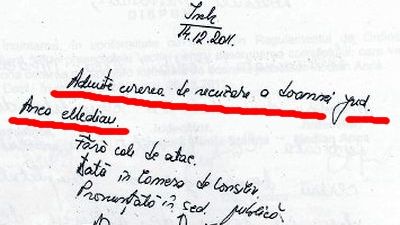 Inch
14.12.2011.
Admite cererea de recuzare a doamnei jud.
Anca Median.
Fără cale de atac.
Dată în Camera de Consiliu
Pronunțată în sed. publică